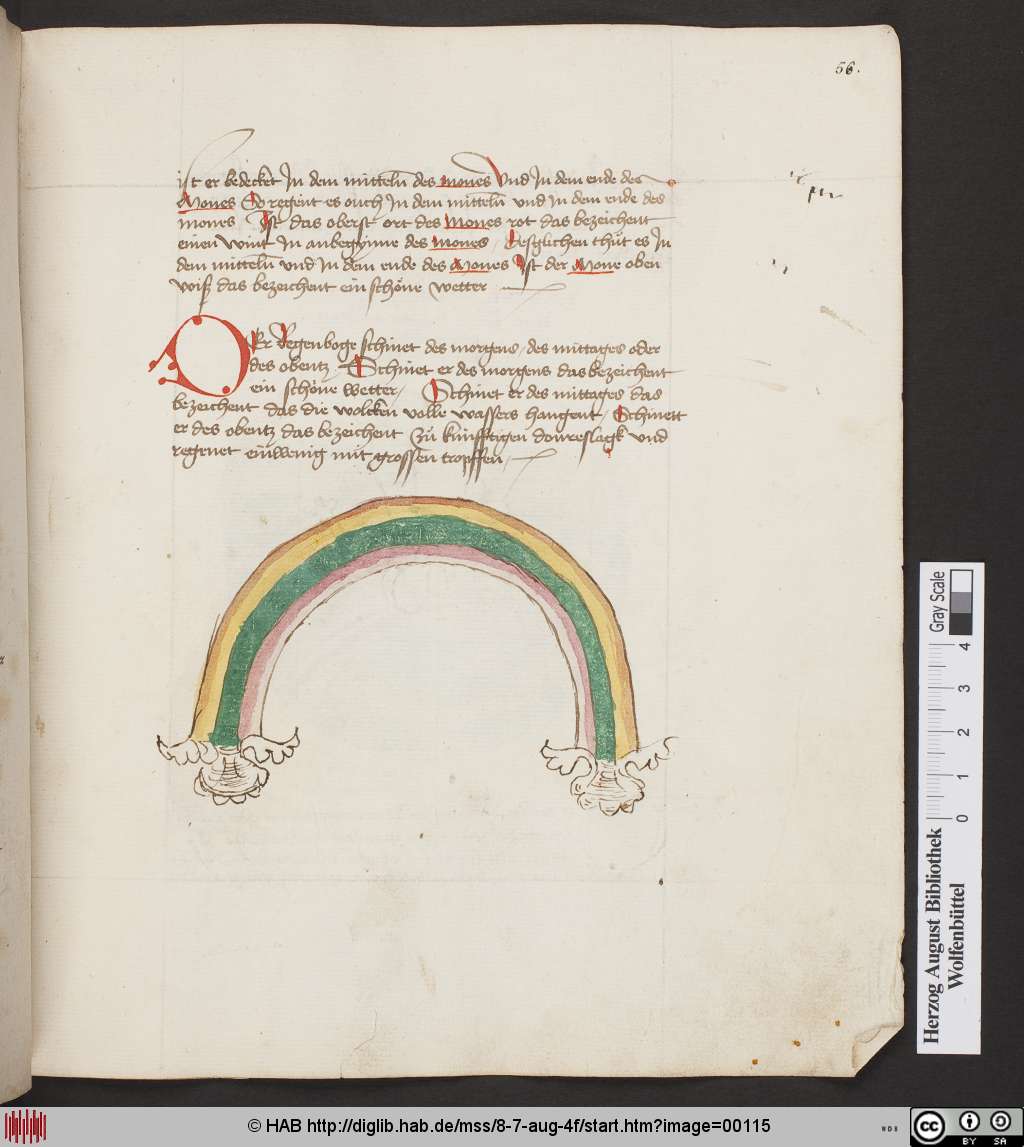 56.
ist er bedecket In dem mitteln̄ des mones Vnd In dem ende des
Mones So regent es ouch In dem mitteln̄ vnd in dem ende des
mones Ist das oberst ort des Mones rot das bezeichent
einen wint In anbegynne des mones / Desglichen thüt es In
dem mitteln̄ vnd In dem ende des Mones Ist der Mone oben
wiß das bezeichent ein schöne wetter
DEr Regenboge schinet des morgens / des mittages oder
des obentz / Schinet er des morgens das bezeichent
ein schöne wetter / Schinet er des mittages das
bezeichent das die wolcken volle wassers hangent / Schinett
er des obentz das bezeichent Zü künfftigen donreslagk vnd
regenet ein wenig mit grossen tropffen /
Gray Scale
0 1 2 3 4
Herzog August Bibliothek
Wolfenbüttel
© HAB http://diglib.hab.de/mss/8-7-aug-4f/start.htm?image=00115
WDB
cc BY SA